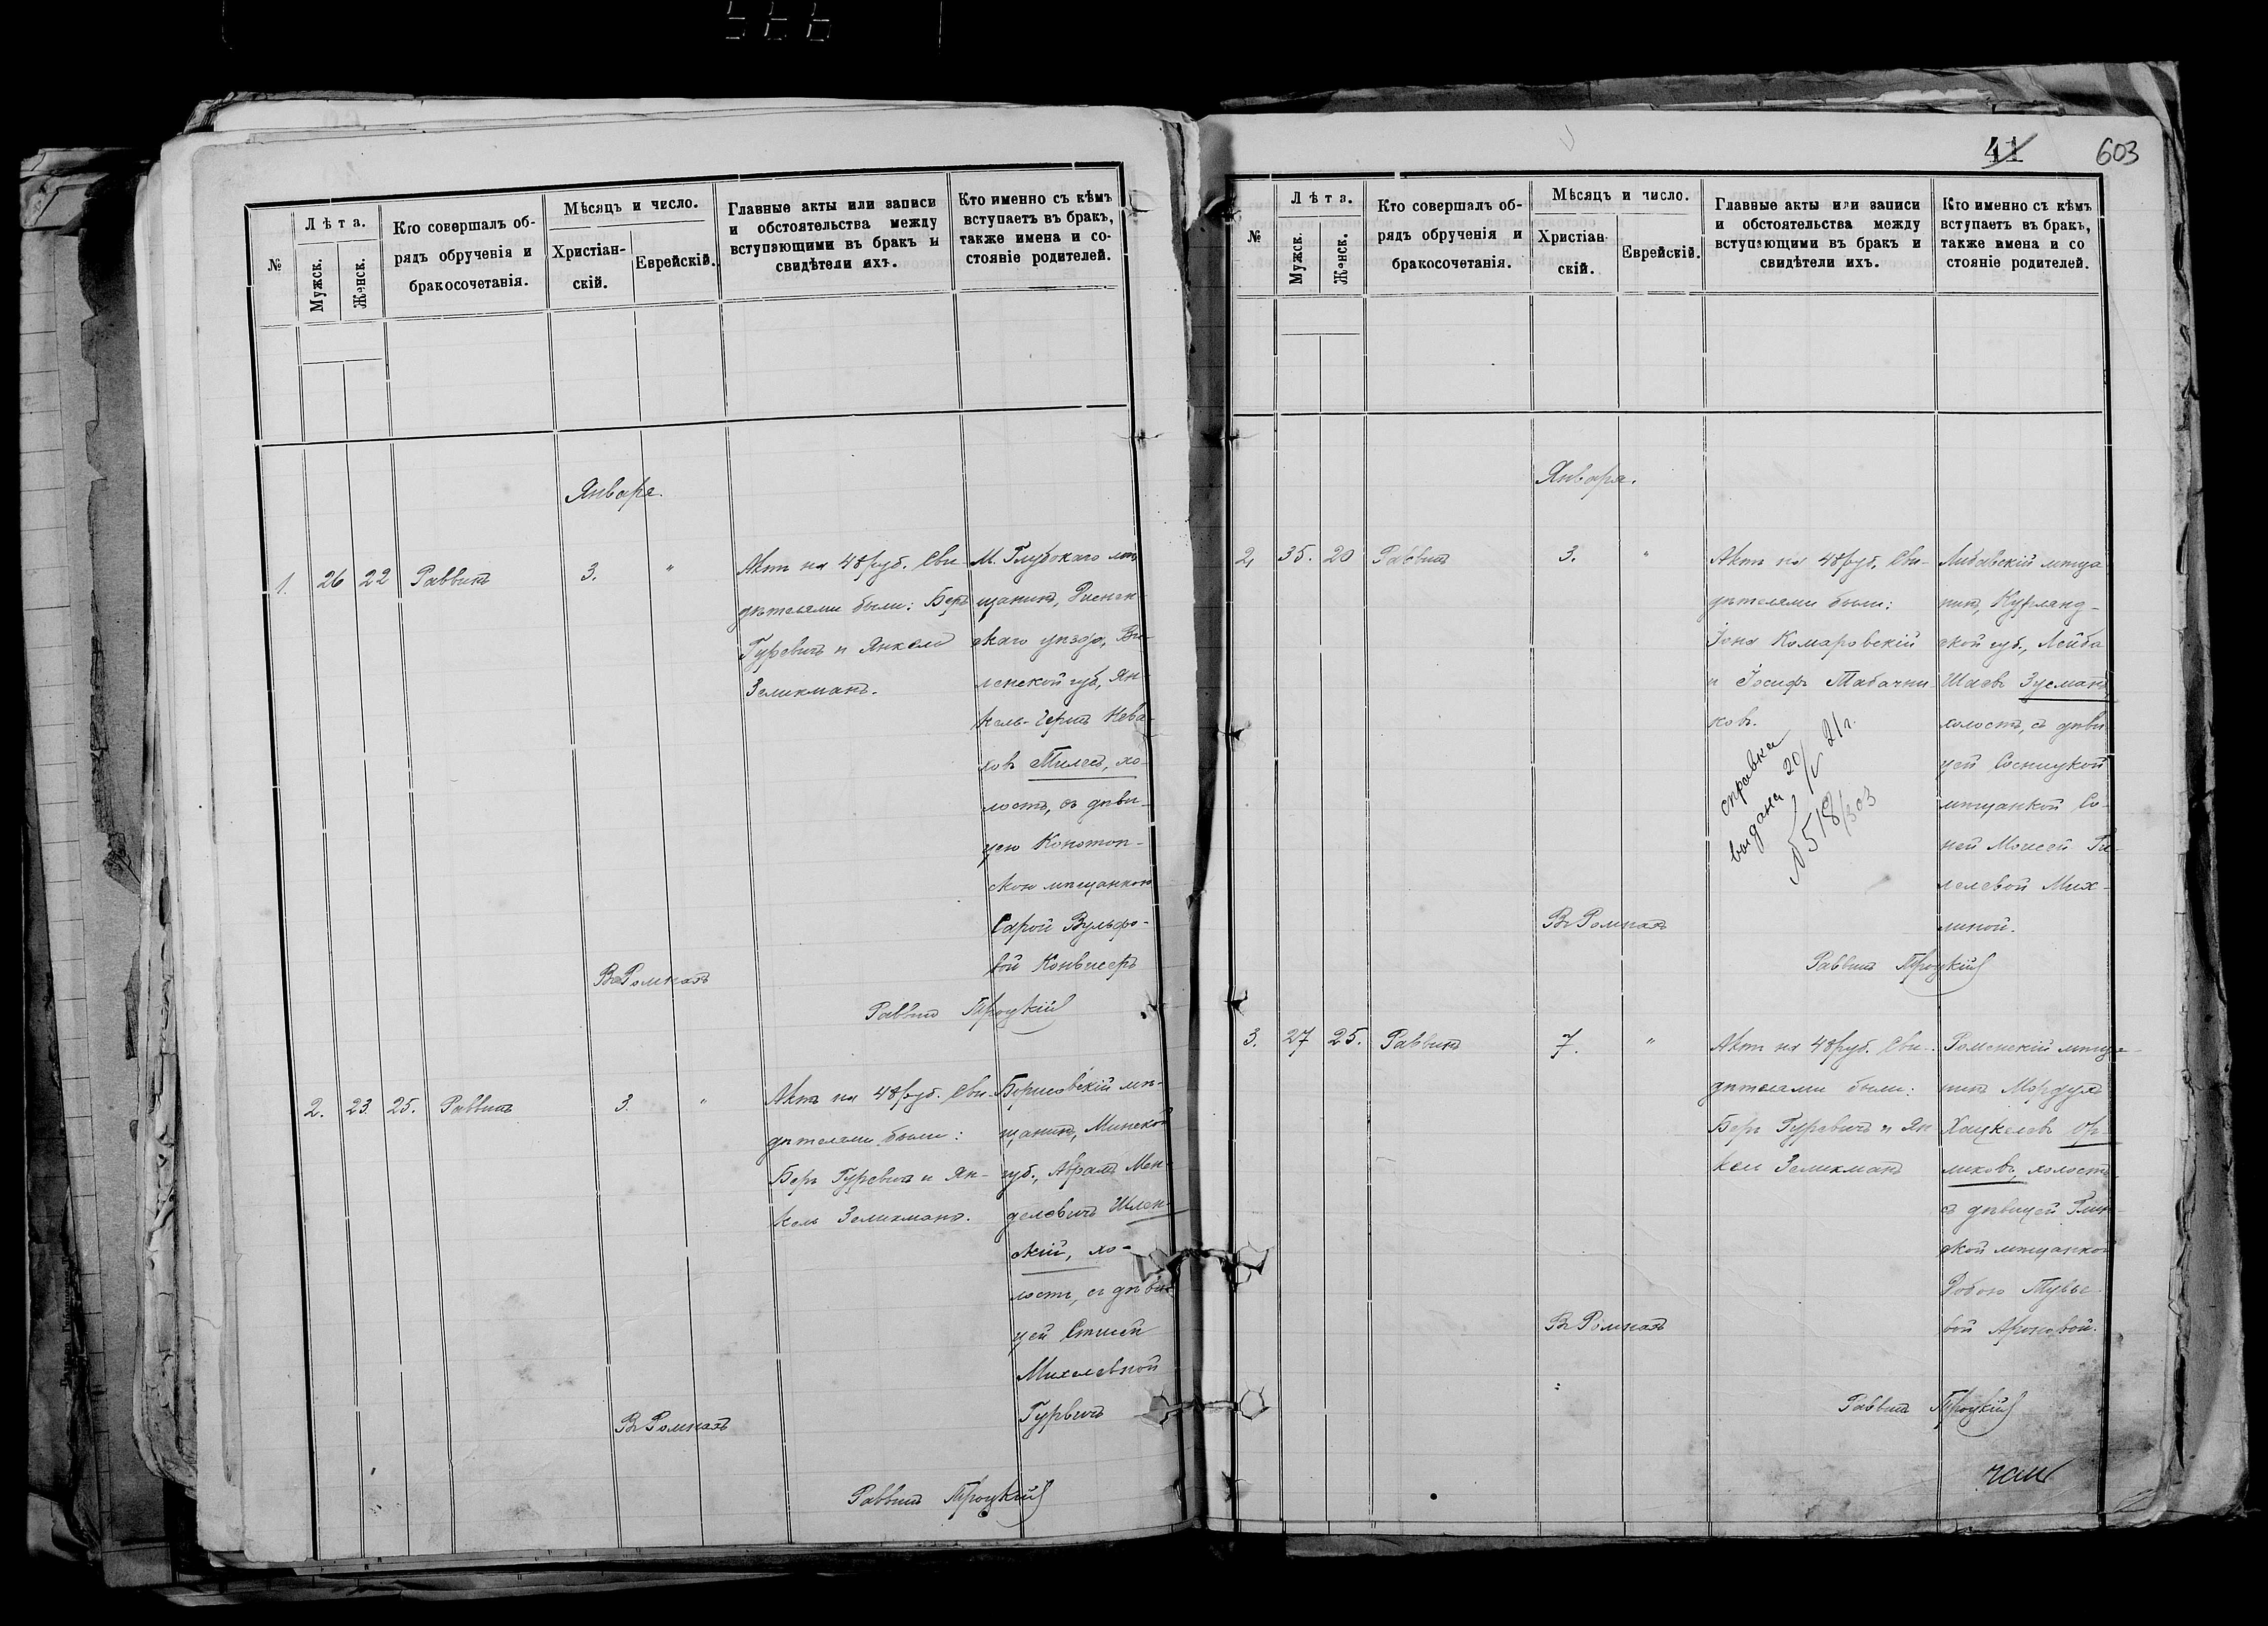 №
Лѣта.
Мужск.
Женск.
Кто совершалъ об-
рядъ обрученія и
бракосочетанія.
Мѣсяцъ и число.
Христіан-
скій.
Еврейскій.
Главные акты или записи
и обстоятельства между
вступающими въ бракъ и
свидѣтели ихъ.
Кто именно съ кѣмъ
вступаетъ въ бракъ,
также имена и со-
стояніе родителей.
Января.
1. 26 22 Раввинъ 3. "
Актъ на 48 руб. Сви-
дѣтелями были: Беръ
Гуревичъ и Янкель
Зеликманъ.
М. Глубокаго мѣ
щанинъ, Дисненс
скаго уѣзда, Ви-
ленской губ., Ян-
кель-Герцъ
ховъ Тилесъ, хо-
лостъ, съ дѣви-
цею Конотоп-
скою мѣщанкою
Сарой Вульфо-
вой Конвисеръ
Въ Ромнахъ
Раввинъ Троцкій
2. 23. 25. Раввинъ 3. "
Актъ на 48 руб. Сви-
дѣтелями были:
Беръ Гуревичъ и Ян-
кель Зеликманъ.
Борисовскій мѣ-
щанинъ, Минской
губ., Абрамъ Мен-
делевичъ Шлен-
скій, хо-
лостъ, съ дѣви-
цей
Михелевной
Гурвичъ
Въ Ромнахъ
Раввинъ Троцкій
41 603
№
Лѣта.
Мужск.
Женск.
Кто совершалъ об-
рядъ обрученія и
бракосочетанія.
Мѣсяцъ и число.
Христіан-
скій.
Еврейскій.
Главные акты или записи
и обстоятельства между
вступающими въ бракъ и
свидѣтели ихъ.
Кто именно съ кѣмъ
вступаетъ въ бракъ,
также имена и со
стояніе родителей.
Января.
2, 35. 20 Раввинъ 3. "
Актъ на 48 руб. Сви-
дѣтелями были:
Іона Комаровскій
и Іосифъ Табачни
ковъ.
справка
выдана 20/V 21 г.
№ 518/303
Либавскій мѣща
нинъ, Курлянд-
ской губ., Лейба
Шаевъ Зусманъ
холостъ, съ дѣви
цей Сосницкой
мѣщанкой Со-
ней Моисей Ги-
лелевой Мих-
линой.
Въ Ромнахъ
Раввинъ Троцкій
3. 27 25. Раввинъ 7. "
Актъ на 48 руб. Сви-
дѣтелями были:
Беръ Гуревичъ и Ян
кель Зеликманъ
Роменскій мѣща-
нинъ Мордухъ
Хацкелевъ Ор-
ликовъ, холостъ
съ дѣвицей Глин-
ской мѣщанкой
Добою Тувье-
вой Ароновой.
Въ Ромнахъ
Раввинъ Троцкій